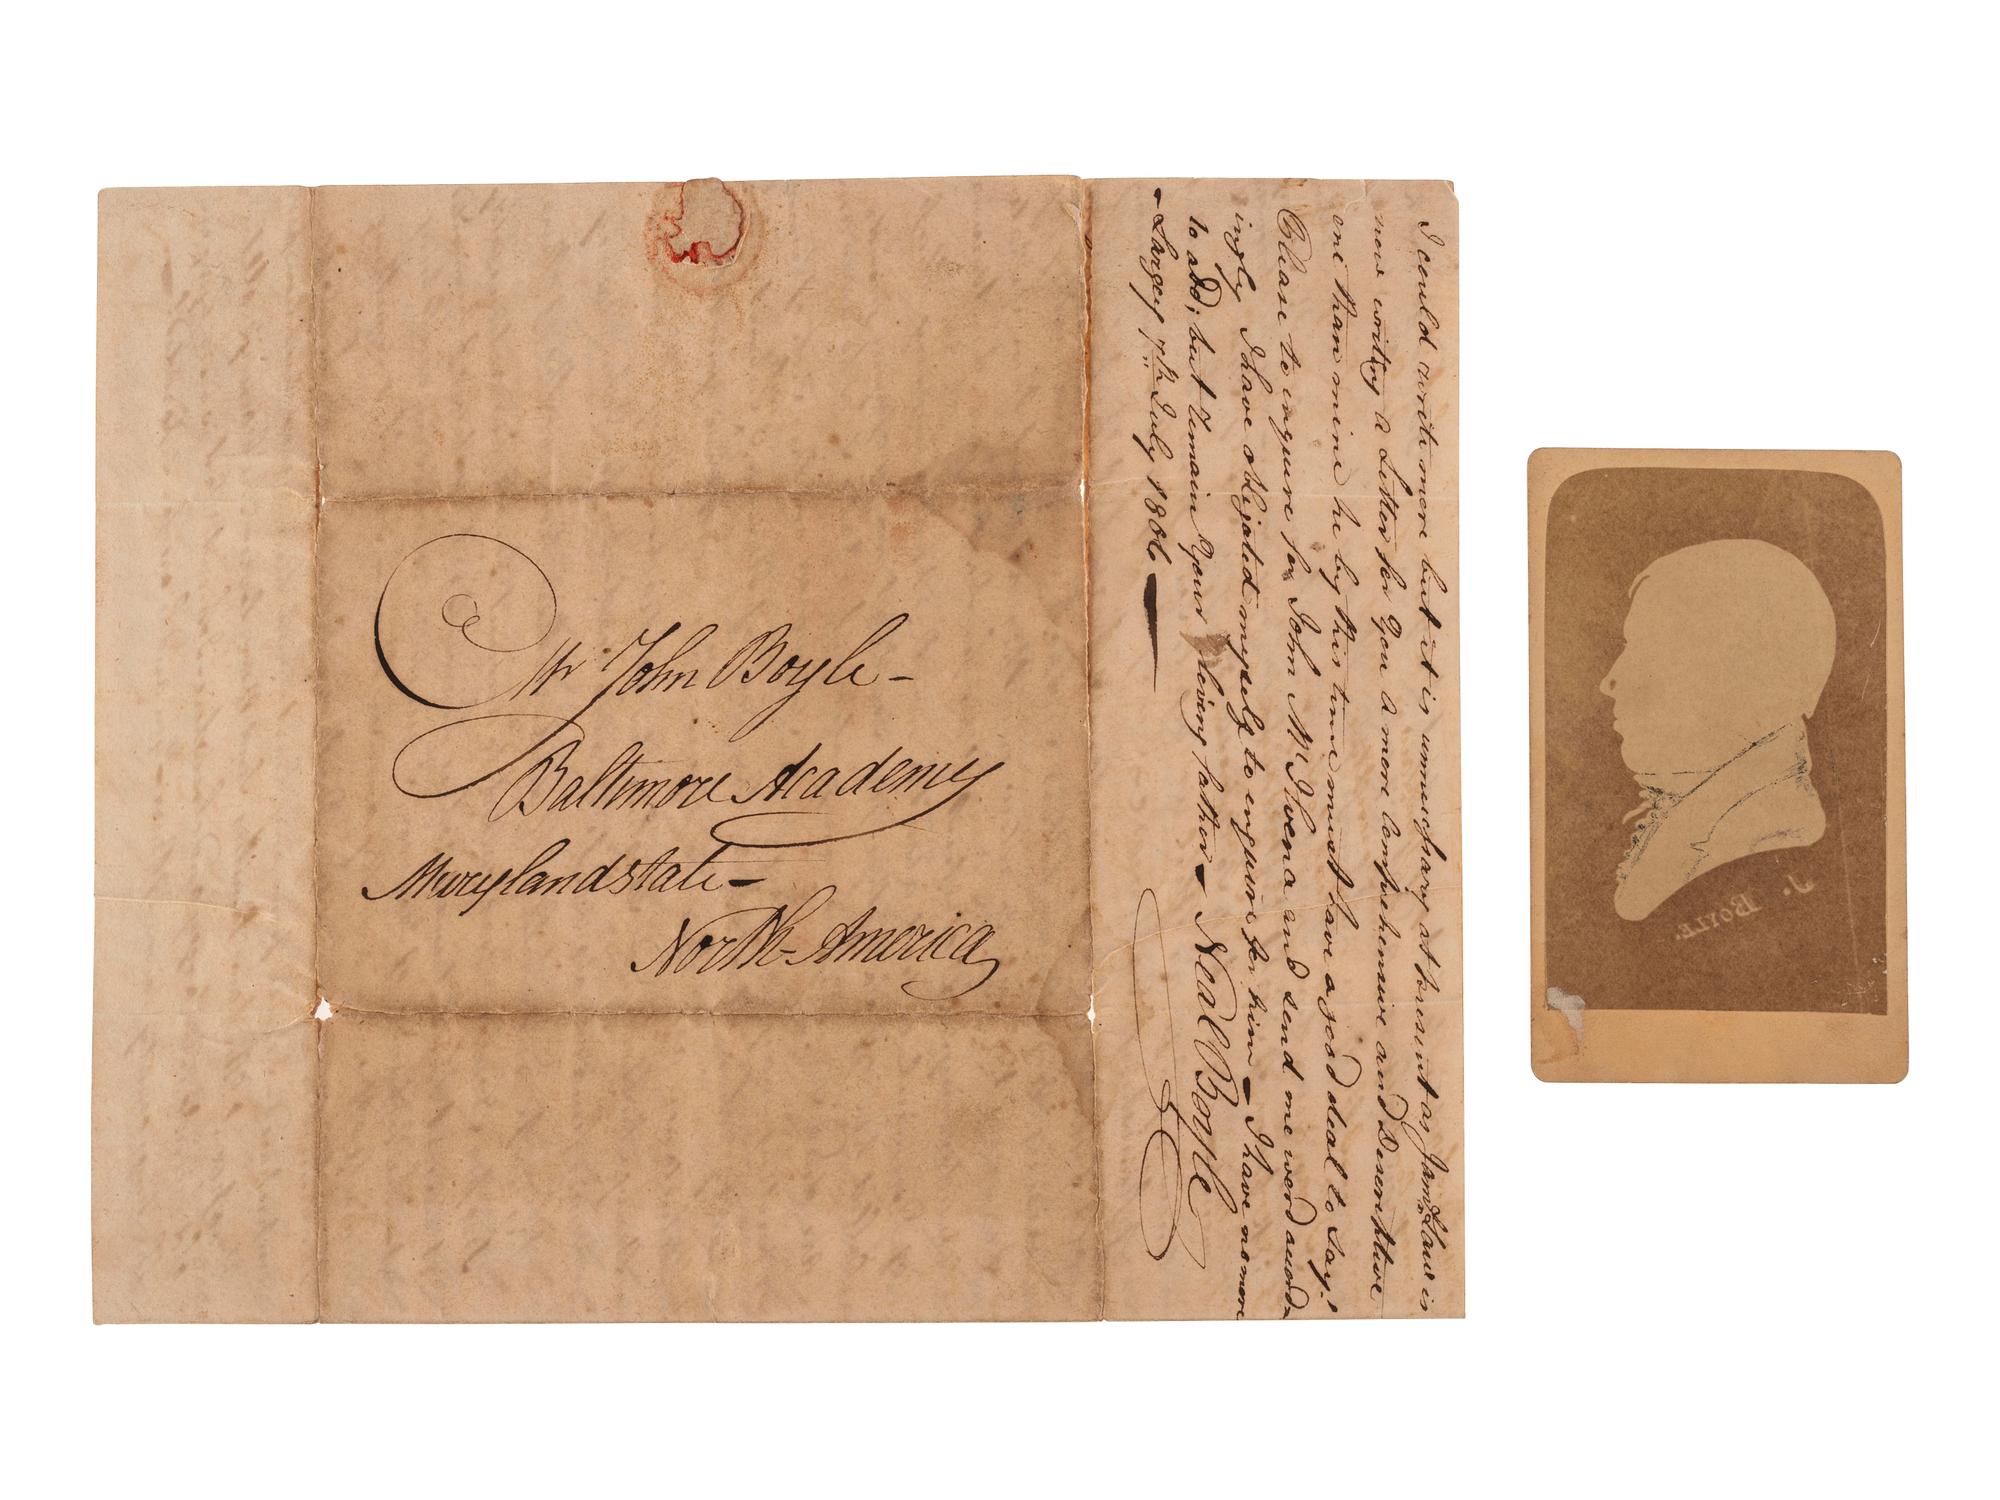 Mr John Boyle -
Baltimore Academy
Marylandstate -
North-America
I could write more but it is unnecessary at present as James is
now writing a Letter for you a more Comprehensive and Descriptive
one than mine he by this time must have a good deal to say!
Please to enquire for John McIlvena and send me word accord=
ingly I have obligated myself to enquire for him - I have no more
to add; but remain your loving father - Neal Boyle
- Largey 7th July 1806 -
J. BOYLE.